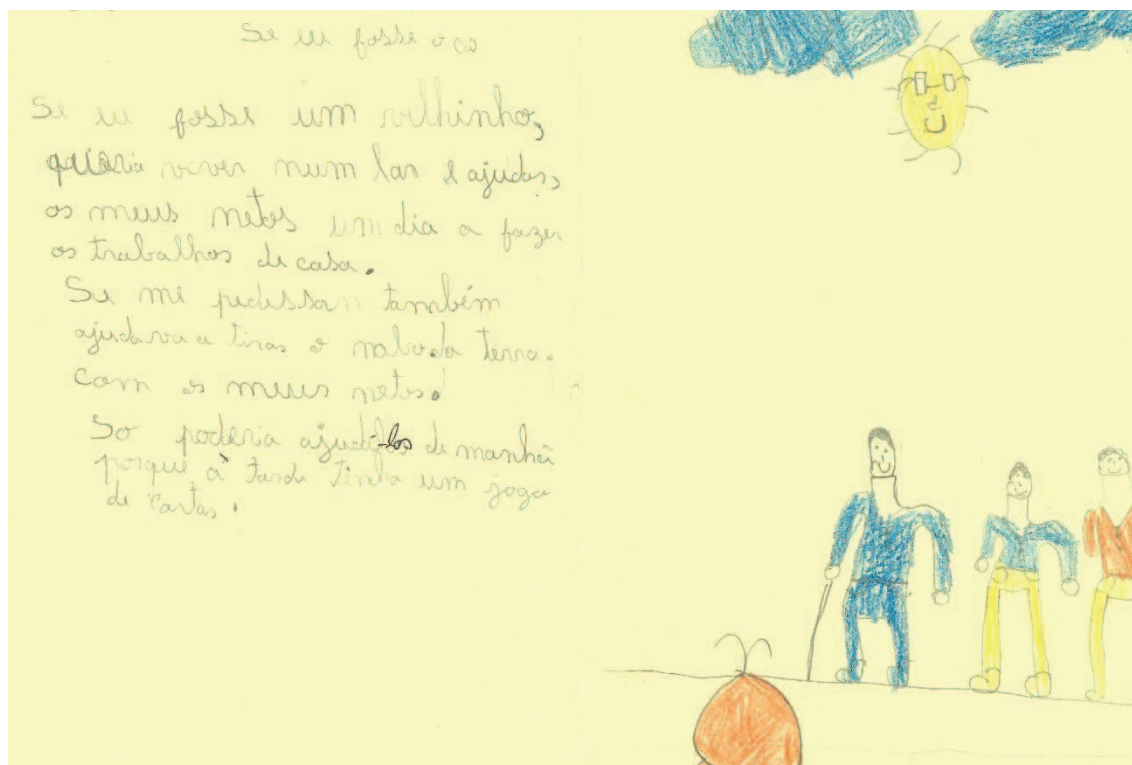 Se eu fosse o
Se eu fosse um velhinho,
queria viver num lar e ajudar,
os meus netos um dia a fazer
os trabalhos de casa.
Se me pedissem também
ajudava a tirar o nabo da terra.
com os meus netos.
So poderia ajudá-los de manhã
porque à tarde tinha um jogo
de cartas.